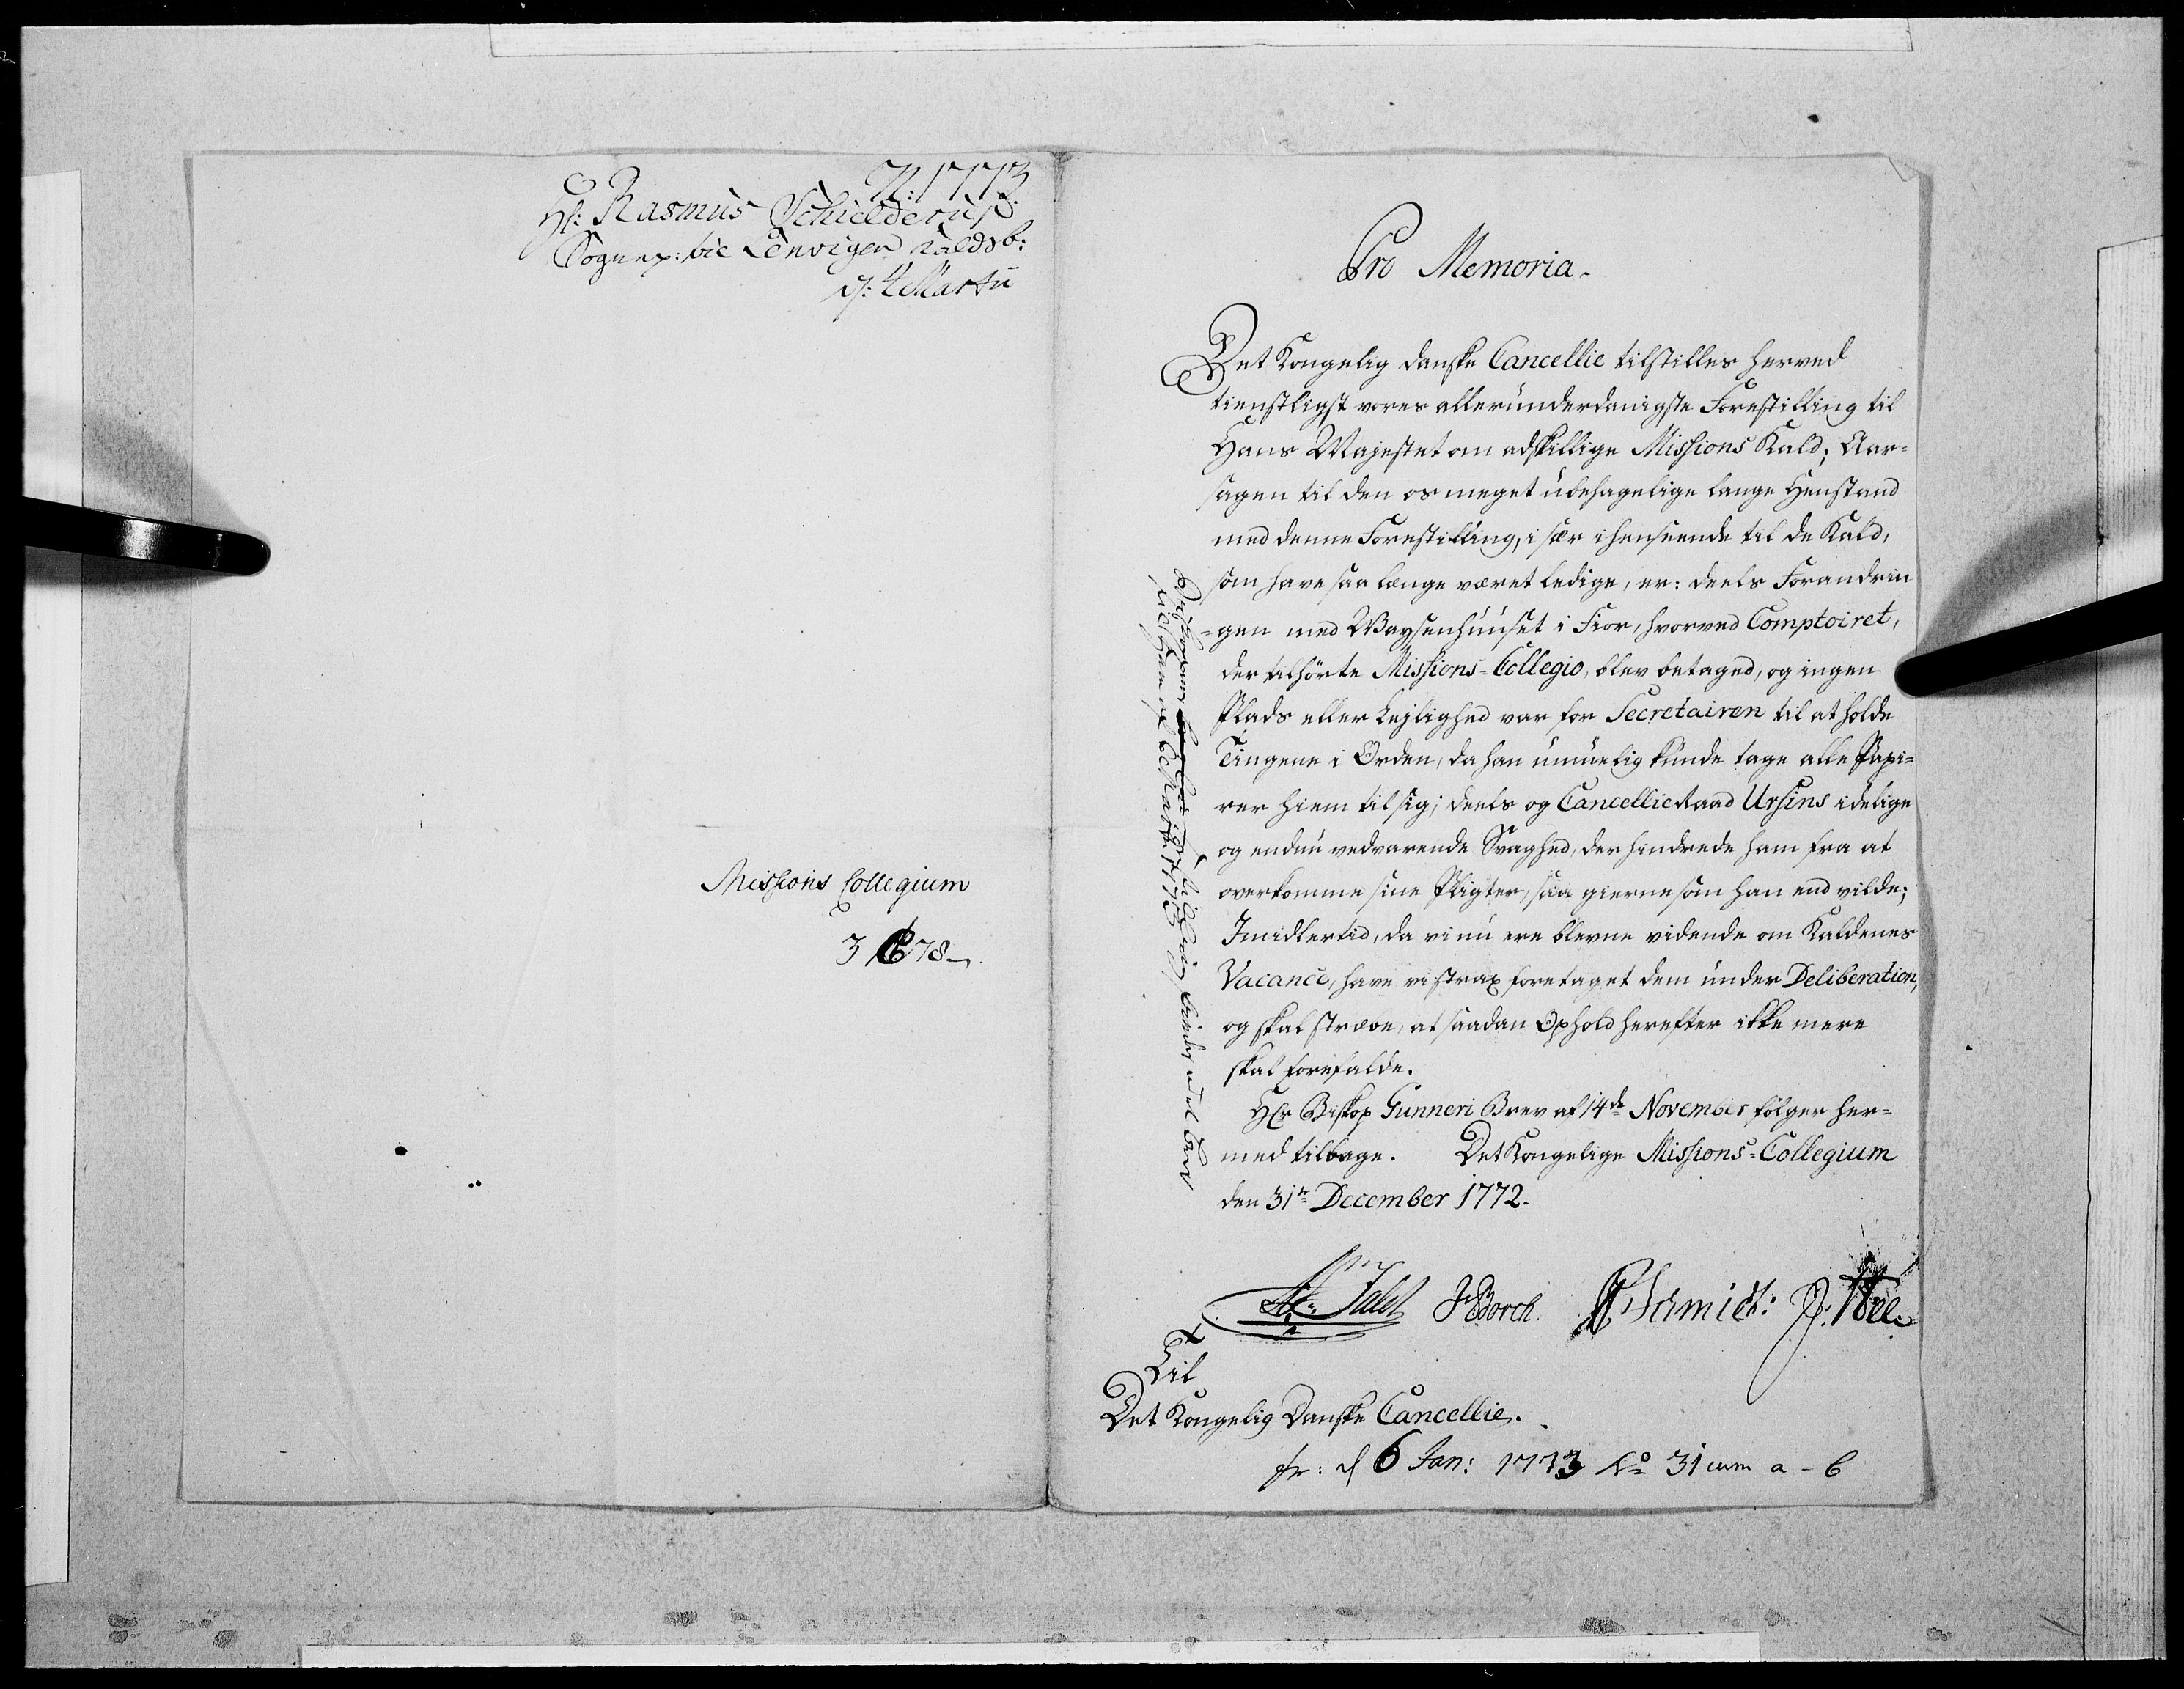 N: 1773
Hr: Rasmus Schielderup
Sognep: til Lenvigen Kaldsb:
d: 4 Martii
Missions Collegium
3 C 78
Pro Memoria.
Det Kongelig danske Cancellie tilstilles herved
tienstligst vores allerunderdanigste Forestilling til
Hans Majestet om adskillige Missions Kald; Aar-
sagen til den os meget ubehagelige lange Henstand
med denne Forestilling, i sær i henseende til de Kald,
som have saa længe været ledige, er: deels Forandrin
=gen med Waysenhuuset i Fior, hvorved Comptoiret,
der tilhørte Missions-Collegio, blev betaged, og ingen
Plads eller Lejlighed var for Secretairen til at holde
Tingene i Orden, da han umuelig kunde tage alle Papi=
rer hiem til sig; deels og CancellieRaad Ursins idelige
og endnu vedvarende Svaghed, der hindrede ham fra at
overkomme sine Pligter, saa gierne som han end vilde;
Imidlertid, da vi nu ere blevne vidende om Kaldenes
Vacance, have vi strax foretaget dem under Deliberation,
og skal stræve, at saadan Ophold herefter ikke mere
skal forefalde.
Hr Biskop Gunneri Brev af 14de November følger her=
med tilbage. Det Kongelige Missions-Collegium
den 31te December 1772.
Falch JBorch Schmidt: J. Hee
Til
Det Kongelig Danske Cancellie.
fr: d 6 Jan: 1773 No 31 cum a - b